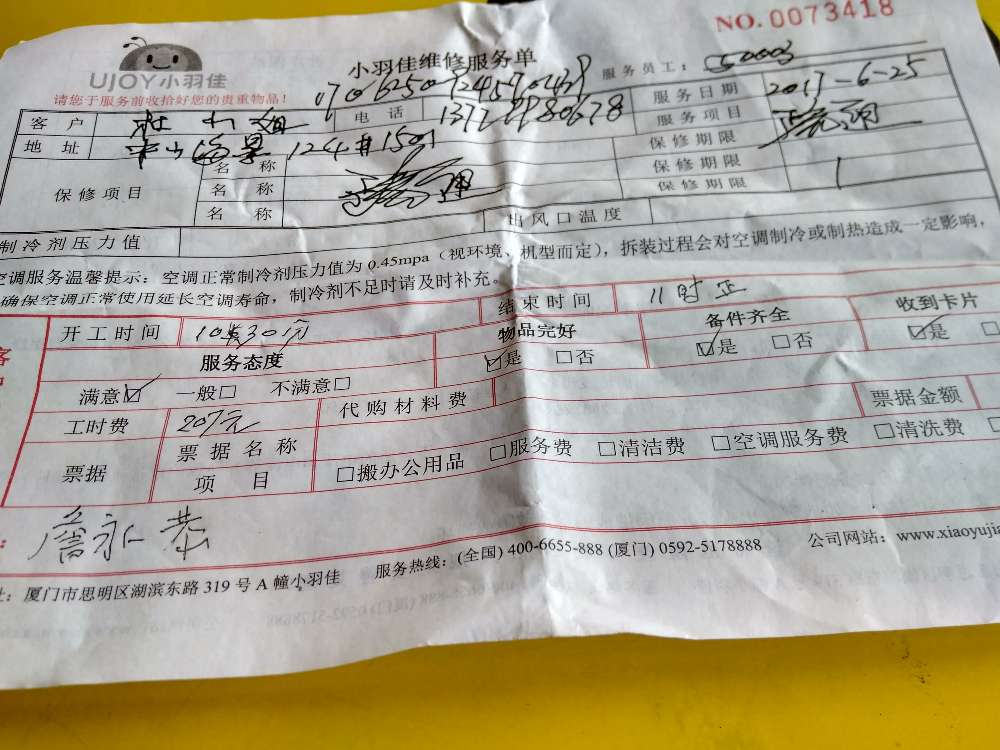 NO.0073418
UJOY小羽佳
小羽佳维修服务单
请您于服务前收拾好您的贵重物品!
服务员工:
客户 电话 服务日期 2017-6-25
地址 124#1501 服务项目
保修项目 名称 保修期限
名称 保修期限
名称 保修期限 1
制冷剂压力值 出风口温度
空调服务温馨提示:空调正常制冷剂压力值为0.45mpa(视环境、机型而定),拆装过程会对空调制冷或制热造成一定影响,
确保空调正常使用延长空调寿命,制冷剂不足时请及时补充。
开工时间 结束时间 11时正
服务态度 物品完好 备件齐全 收到卡片
满意☑ 一般□ 不满意□ ☑是 □否 ☑是 □否 ☑是
工时费 207元 代购材料费 票据金额
票据 票据名称
项目 □搬办公用品 □服务费 □清洁费 □空调服务费 □清洗费
詹永恭
址:厦门市思明区湖滨东路319号A幢小羽佳 服务热线:(全国)400-6655-888(厦门)0592-5178888 公司网站:www.xiaoyujia